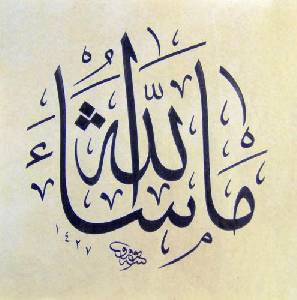 مَا شَاءَ اللّٰهُ
١٤٢٧